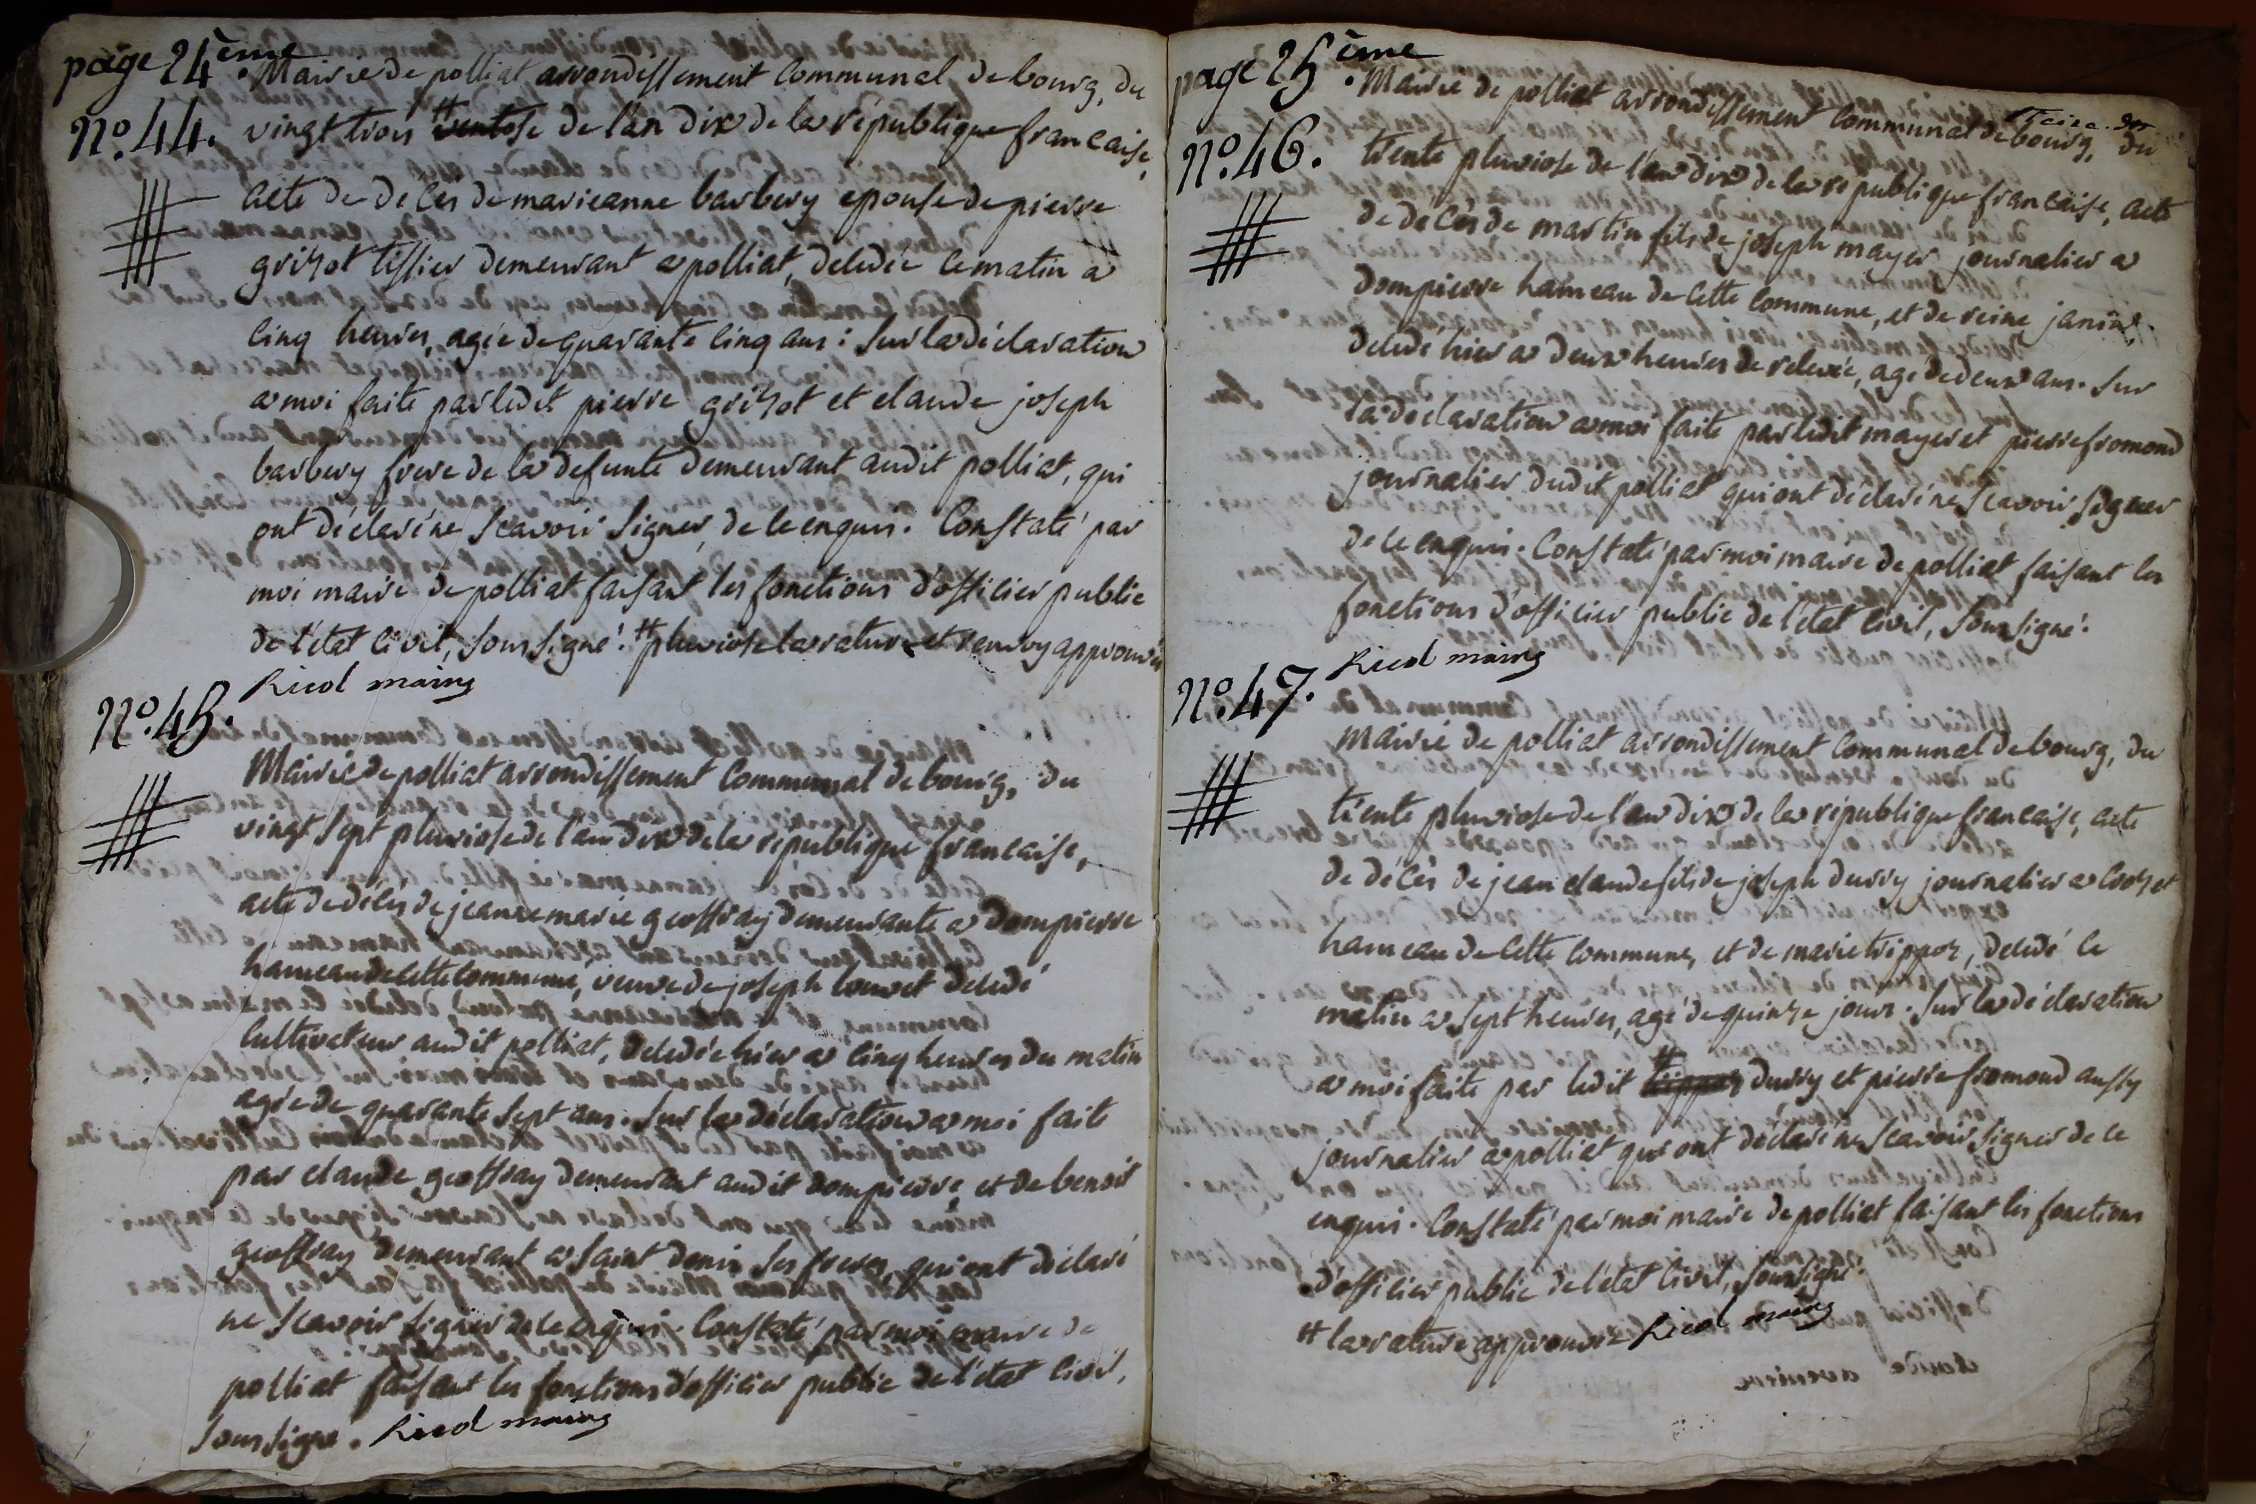 page 24ème.
Mairie de polliat arrondissement Communal de bourg, du
n°. 44. vingt trois # ventose de l'an dix de la république francaise,
acte de deces de marieanne barbery epouse de pierre
grizot tissier demeurant a polliat, deledée ce matin a
cinq heures, agée de quarante cinq ans : sur la déclaration
a moi faite par ledit pierre grizot et claude joseph
barbery frere de la defunte demeurant audit polliat, qui
ont déclaré ne scavoir signer, de ce enquis. Constaté par
moi maire de polliat faisant les fonctions d'officier public
de l'état civil, soussigné. # pluviose la rature et renvoy approuvés
Ricol maire
n°. 45.
Mairie de polliat arrondissement Communal de bourg, du
vingt sept pluviose de l'an dix de la république francaise,
acte de décès de jeanne marie geoffray demeurante a Dompierre
hameau de cette commune, veuve de joseph louvet deledé
cultivateur audit polliat, deledée hier a cinq heures du matin
agée de quarante sept ans. sur la déclaration a moi faite
par claude geoffray demeurant audit dompierre, et de benoit
geoffray demeurant a saint denis ses freres, qui ont déclaré
ne scavoir signer de ce enquis. Constaté par moi maire de
polliat faisant les fonctions d'officier public de l'état civil,
soussigné. Ricol maire
page 25ème.
Mairie de polliat arrondissement Communal de bourg, du
n°. 46. trente pluviose de l'an dix de la république francaise, acte
de deces de martin fils de joseph mayer journalier a
dompierre hameau de cette commune, et de reine janin,
deledé hier a deux heures de relevée, agé de deux ans. sur
la déclaration a moi faite par ledit mayer et pierre fromond
journalier dudit polliat qui ont déclaré ne scavoir signer
de ce enquis. Constaté par moi maire de polliat faisant les
fonctions d'officier public de l'état civil, soussigné.
Ricol maire
n°. 47.
Mairie de polliat arrondissement Communal de bourg, du
trente pluviose de l'an dix de la république francaise, acte
de décès de jean claude fils de joseph durry journalier a crozet
hameau de cette commune, et de marie trippoz, deledé ce
matin a sept heures, agé de quinze jours. sur la déclaration
a moi faite par ledit # trippoz durry et pierre fromond aussy
journalier a polliat qui ont déclaré ne scavoir signer de ce
enquis. Constaté par moi maire de polliat faisant les fonctions
d'officier public de l'état civil, soussigné.
# la rature approuvée Ricol maire